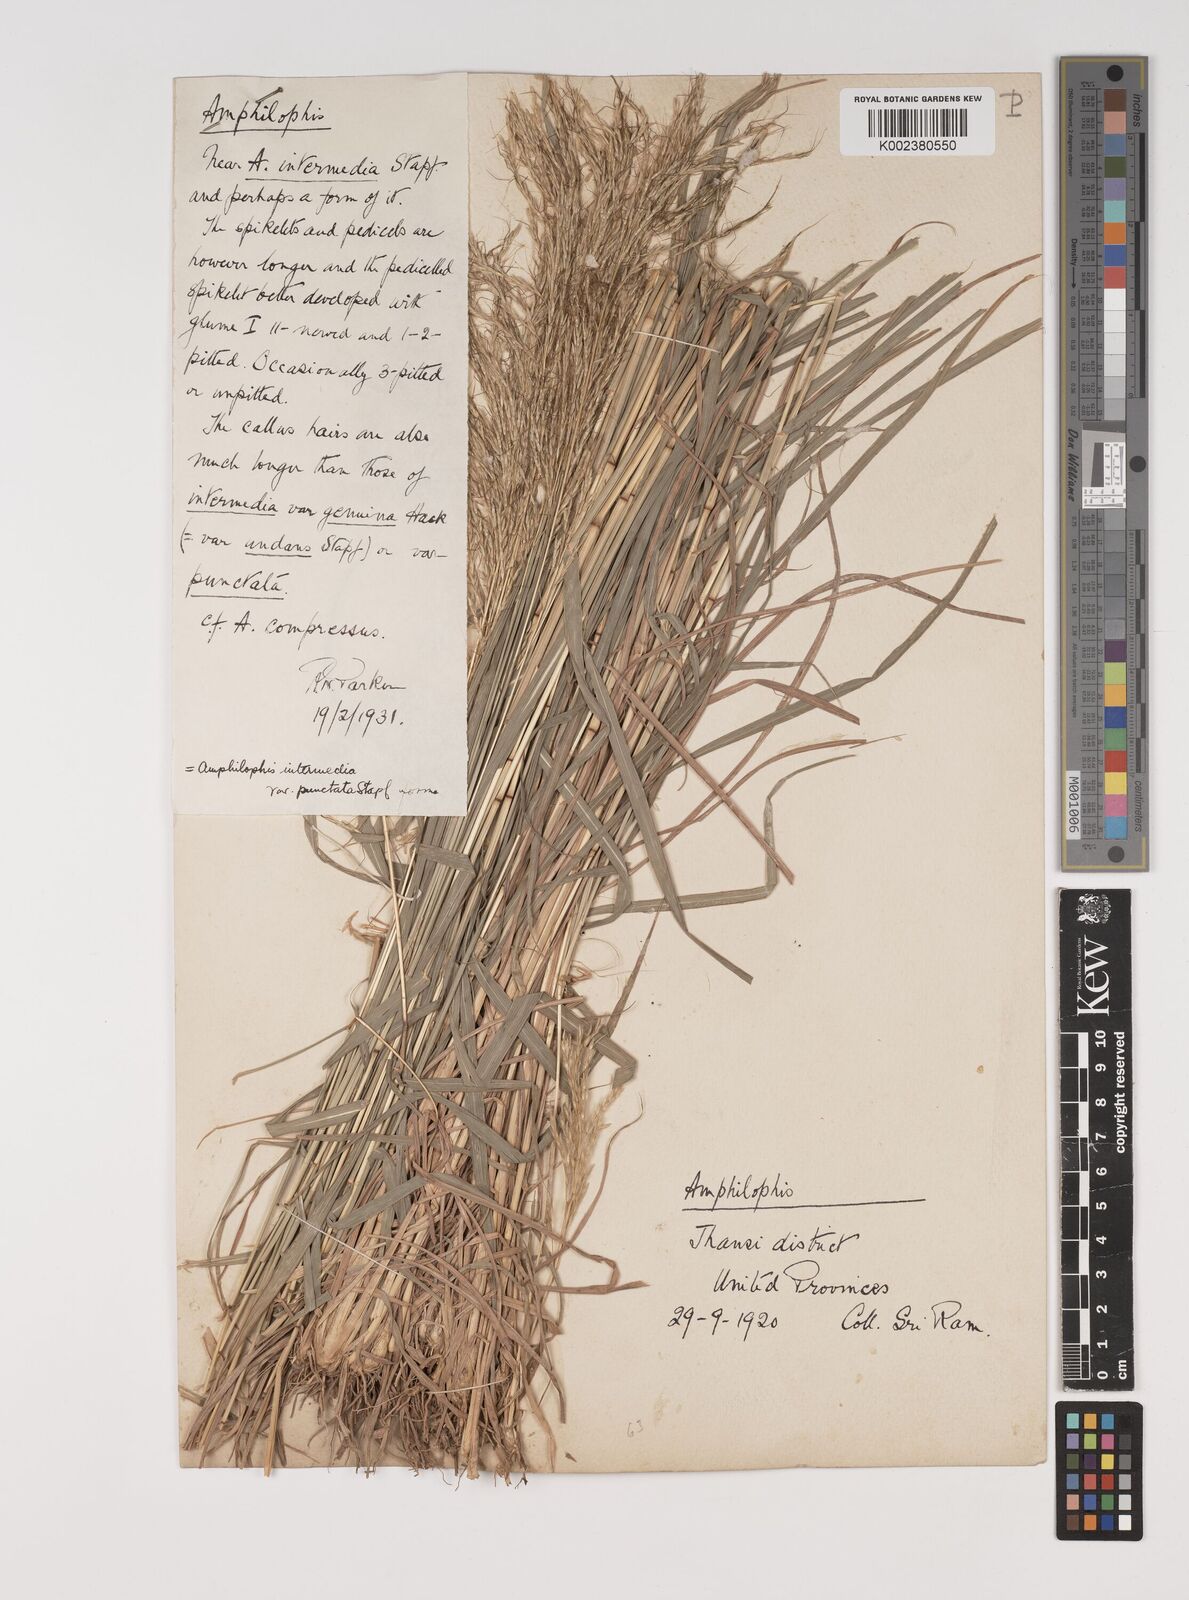 Amphilophis
Near A. intermedia Stapf.
and perhaps a form of it.
The spikelets and pedicels are
however longer and the pedicelled
spikelet better developed with
glume I 11-nerved and 1-2-
pitted. Occasionally 3-pitted
or unpitted.
The callus hairs are also
much longer than those of
intermedia var genuina Hack
(= var undans Stapf) or var
punctata.
cf. A. compressus.
R.N. Parker
19/2/1931.
= Amphilophis intermedia
var. punctata Stapf
ROYAL BOTANIC GARDENS KEW
K002380550
Amphilophis
Jhansi district
United Provinces
29-9-1920 Coll. Sri Ram.
63
inches
centimetres
Don Williams
M001006
Kew
Royal Botanic Gardens
copyright reserved
0 1 2 3 4 5 6 7 8 9 10
cm